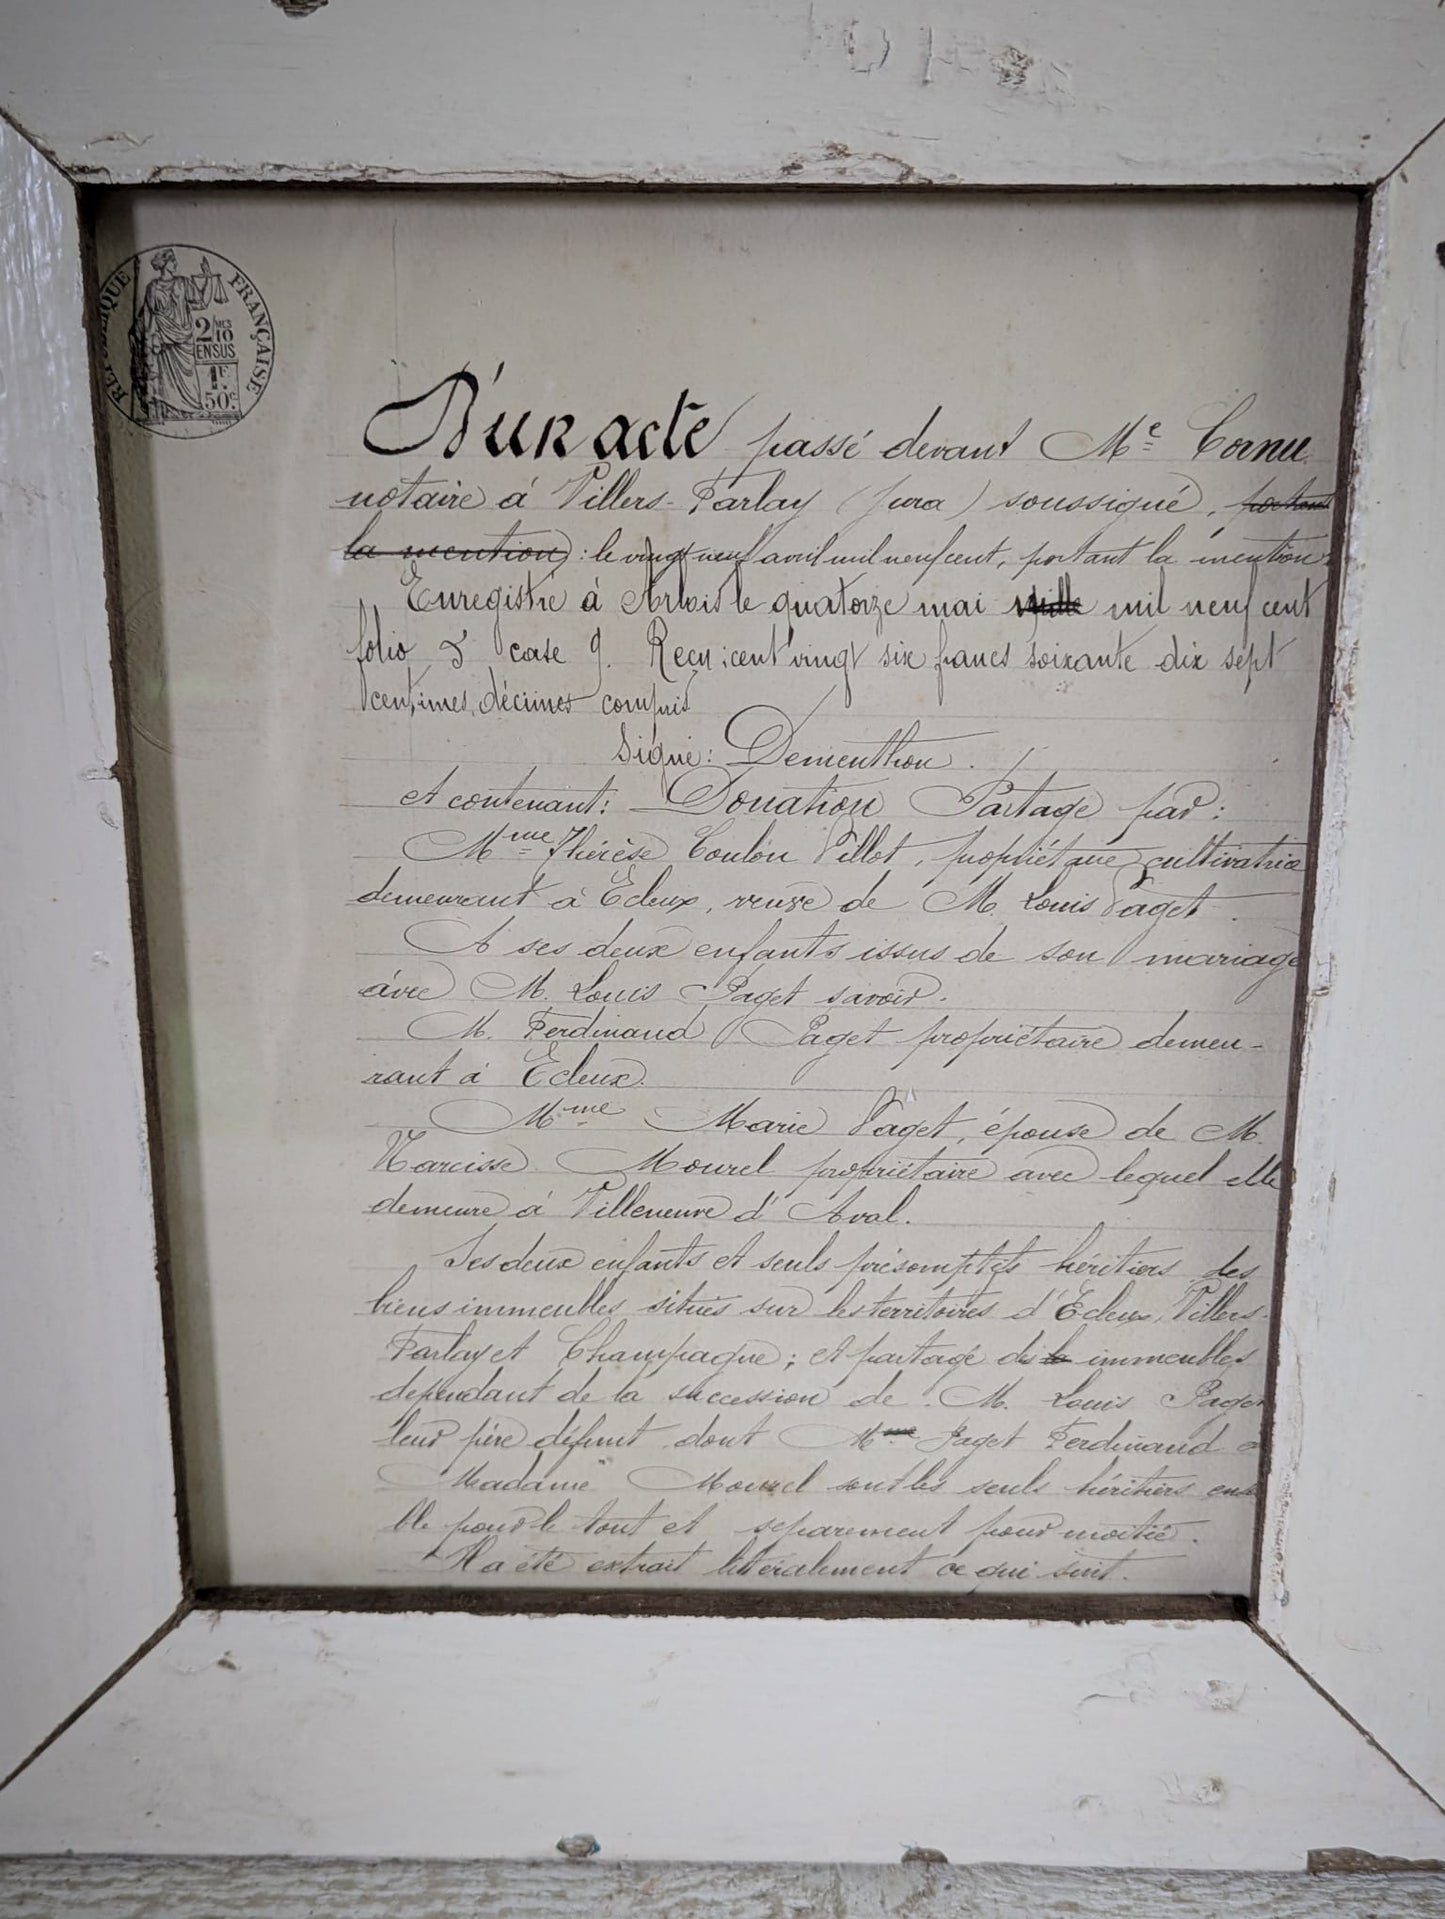 RÉPUBLIQUE FRANÇAISE
2/MES
10
EN SUS
1F
50c
D'un acte passé devant Me Cornu
notaire à Villers-Farlay (Jura) soussigné, portant
la mention : le vingt neuf avril mil neuf cent, portant la mention:
Enregistré à Arbois le quatorze mai mille mil neuf cent
folio case 9. Reçu: cent vingt six francs soixante dix sept
centimes, décimes compris
Signé: Dementhon.
et contenant: Donation Partage par:
Mme Thérèse Coulon Villot, propriétaire cultivatrice
demeurant à Ecleux, veuve de M. Louis Paget.
A ses deux enfants issus de son mariage
avec M. Louis Paget savoir.
M. Ferdinand Paget propriétaire demeu-
rant à Ecleux.
Mme Marie Paget, épouse de M.
Narcisse Mourel propriétaire avec lequel elle
demeure à Villeneuve d'Aval.
Ses deux enfants et seuls présomptifs héritiers des
biens immeubles situés sur les territoires d'Ecleux, Villers-
Farlay et Champagne; et partage des immeubles
dépendant de la succession de M. Louis Paget
leur père défunt dont Paget Ferdinand
Madame Mourel sont les seuls héritiers ensem
ble pour le tout et séparement pour moitié.
Il a été extrait littéralement ce qui suit.